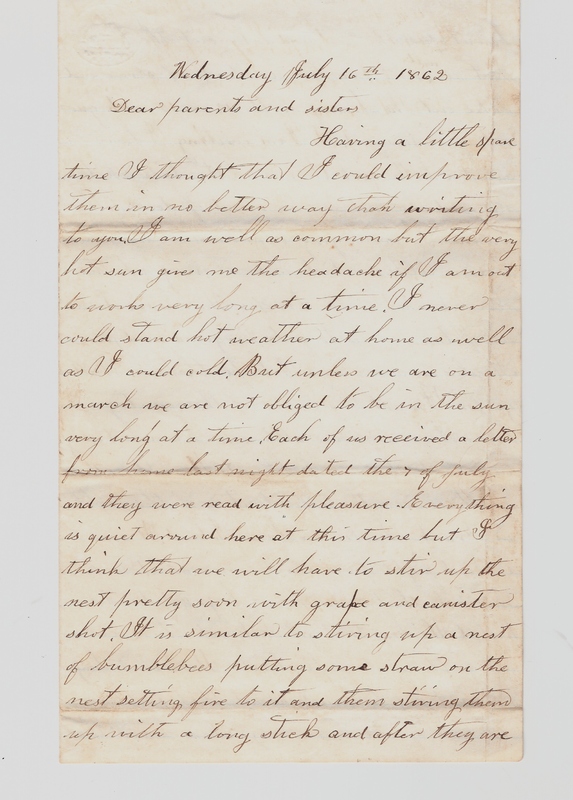 Wednesday July 16th 1862
Dear parents and sisters
Having a little spare
time I thought that I could improve
them in no better way than writing
to you. I am well as common but the very
hot sun gives me the headache if I am out
to work very long at a time. I never
could stand hot weather at home as well
as I could cold. But unless we are on a
march we are not obliged to be in the sun
very long at a time. Each of us received a letter
from home last night dated the 7 of July
and they were read with pleasure. Everything
is quiet around here at this time but I
think that we will have to stir up the
nest pretty soon with grape and canister
shot. It is similar to stiring up a nest
of bumblebees putting some straw on the
nest setting fire to it and them stiring them
up with a long stick and after they are